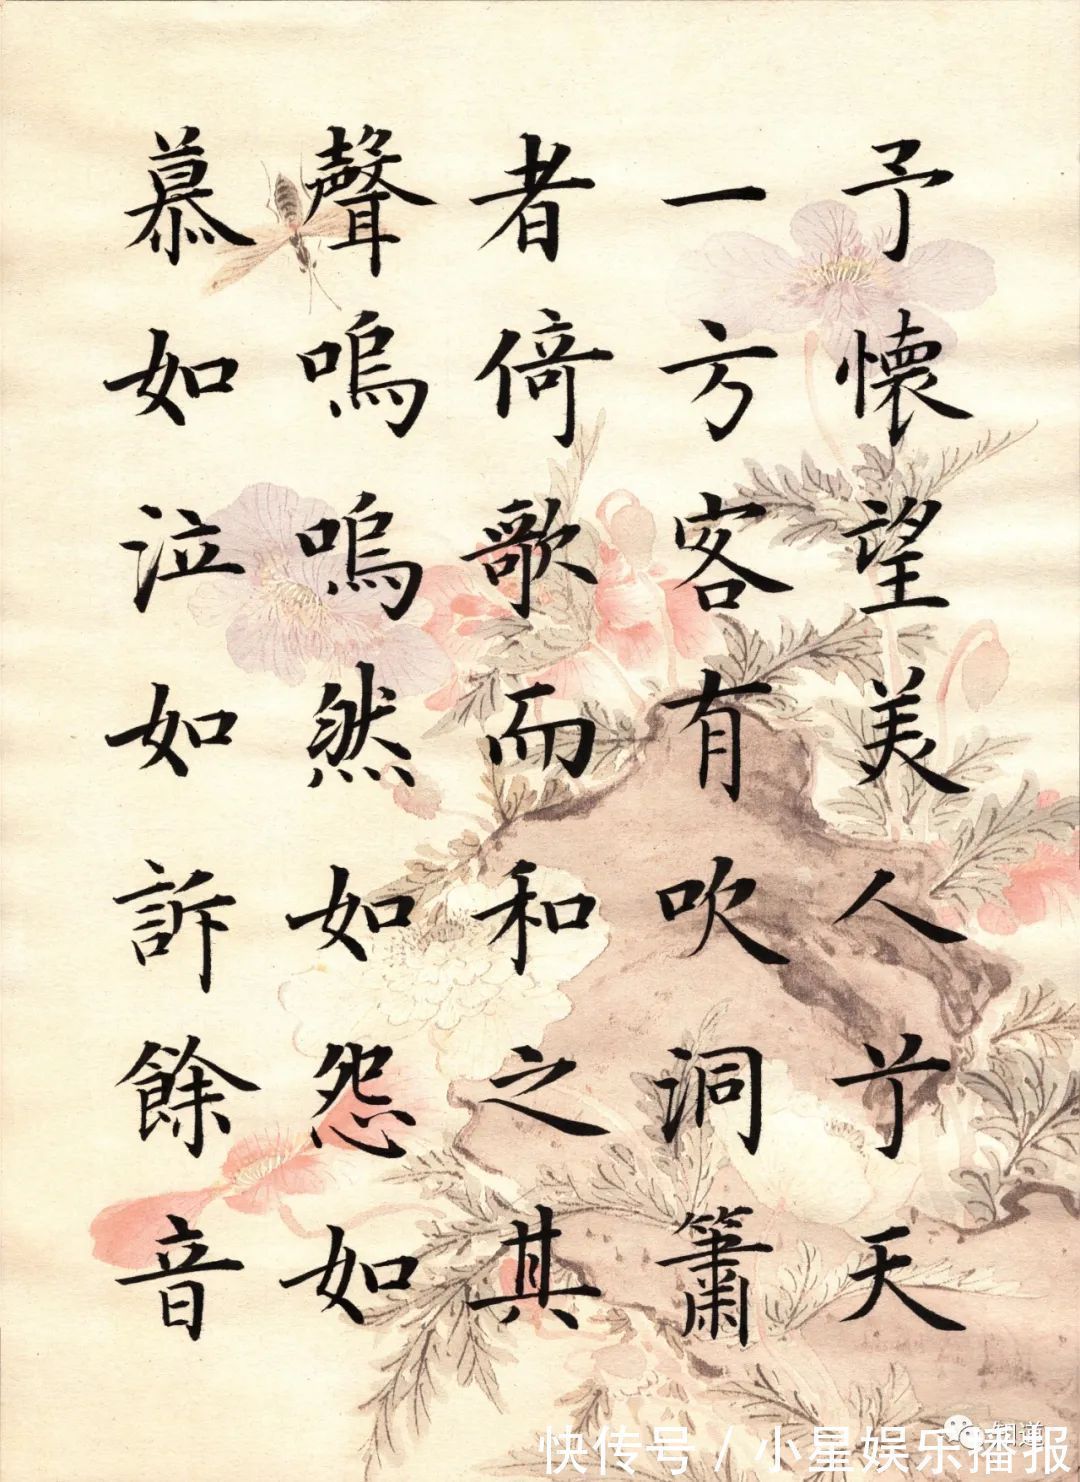 予懷望美人兮天
一方客有吹洞簫
者倚歌而和之其
聲嗚嗚然如怨如
慕如泣如訴餘音
知道
快传号 / 小星娱乐播报